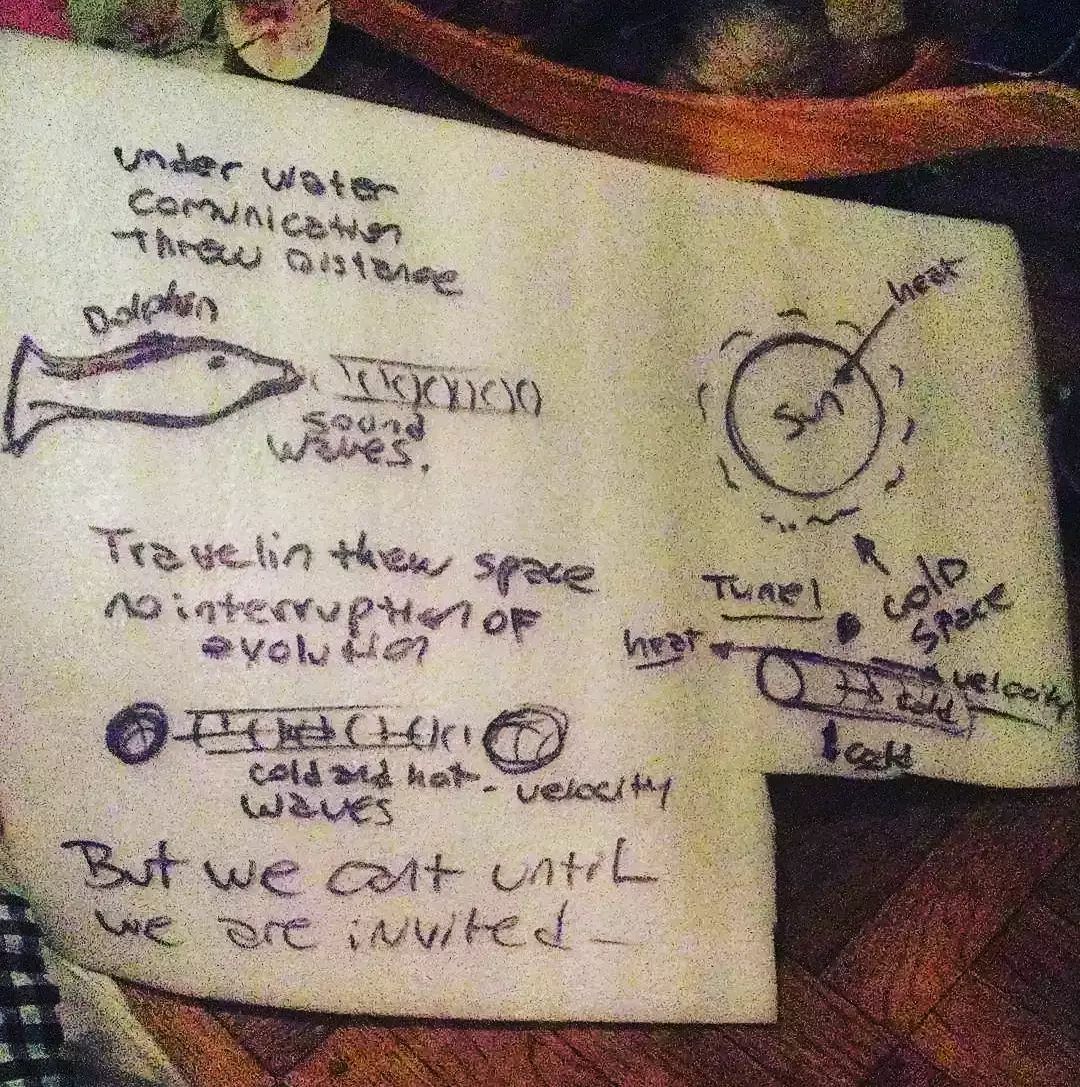 under water
comunication
threw Distance
Dolphin
sound
waves.
heat
Sun
cold
space
Travelin threw space
no interruption OF
evolution
Tunel
heat
velocity
cold
cold
cold and hot - velocity
waves
But we cant until
we are invited -